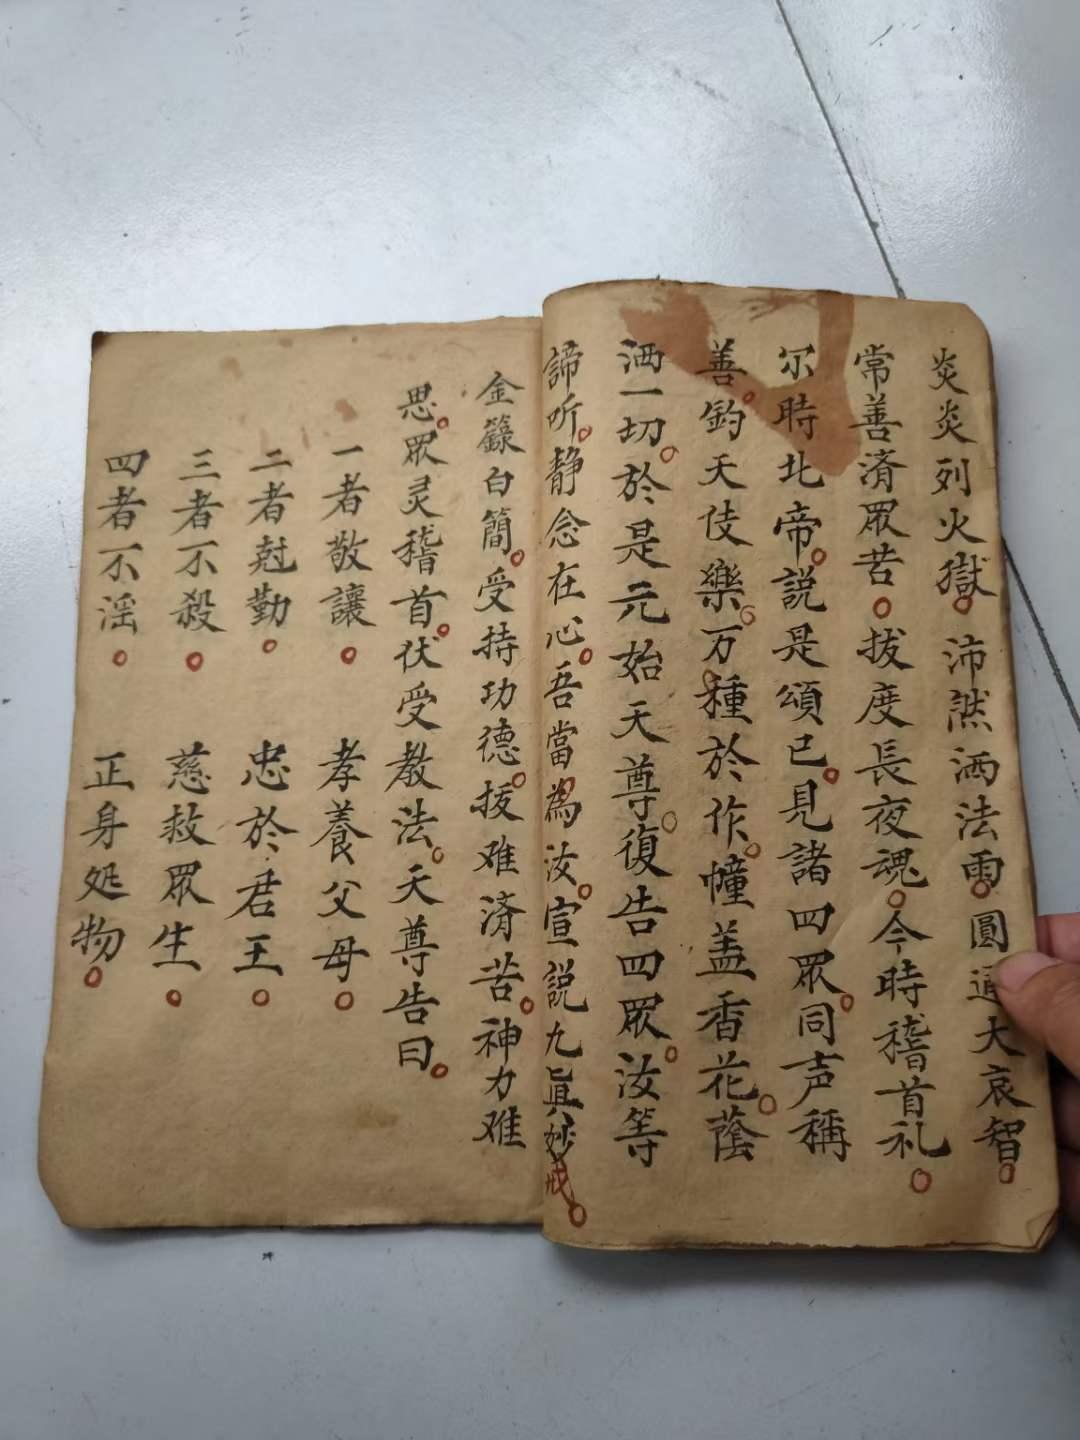 炎炎列火獄沛然洒法雨圓通大哀智
常善済眾苦拔度長夜魂今時稽首礼
尔時北帝説是頌已見諸四眾同声稱
善鈞天伎樂万種於作幢盖香花蔭
洒一切於是元始天尊復告四眾汝等
諦听静念在心吾當為汝宣説九眞妙戒
金籙白簡受持功德拔难済苦神力难
思眾灵稽首伏受教法天尊告曰
一者敬讓 孝養父母
二者尅勤 忠於君王
三者不殺 慈救眾生
四者不淫 正身処物